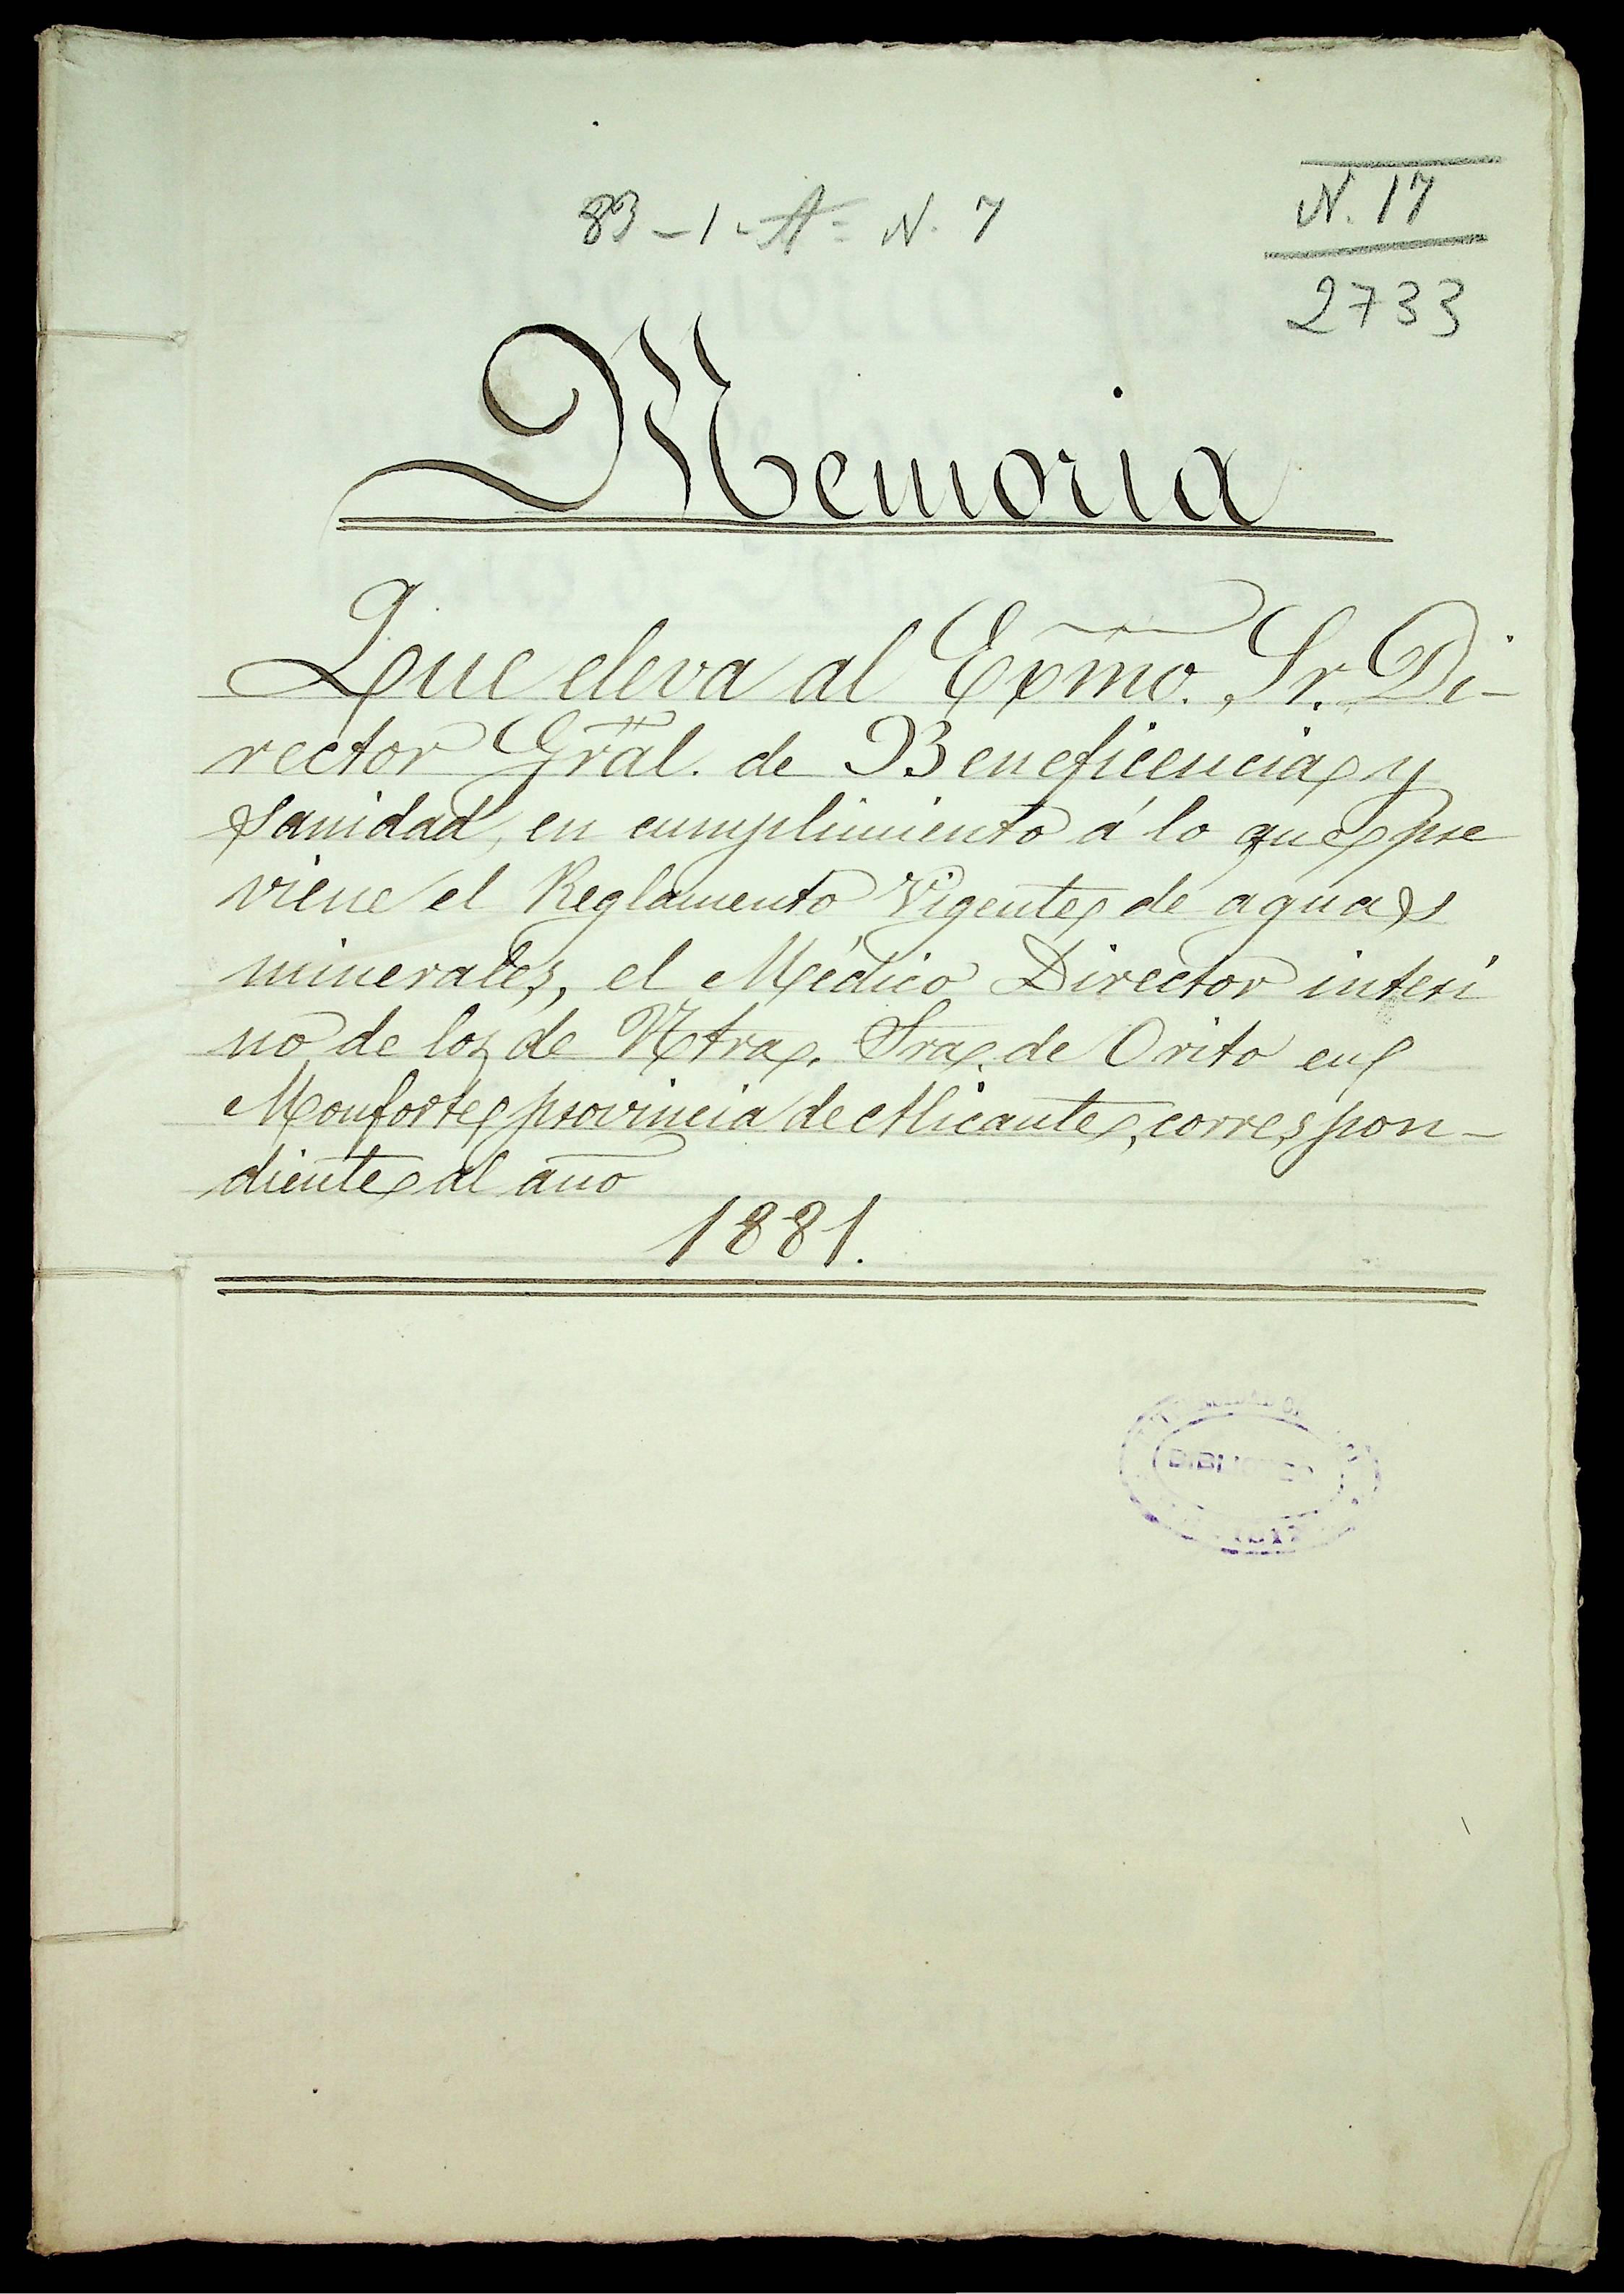 83-1-A= N. 7
N. 17
2733
Memoria
Que eleva al Exmo. Sr. Di-
rector Gral. de Beneficencia y
Sanidad, en cumplimiento á lo que pre
viene el Reglamento Vigente de aguas
minerales, el Médico Director interi
no de los de Ntra. Sra. de Orito en
Monforte provincia de Alicante, correspon-
diente al año
1881.